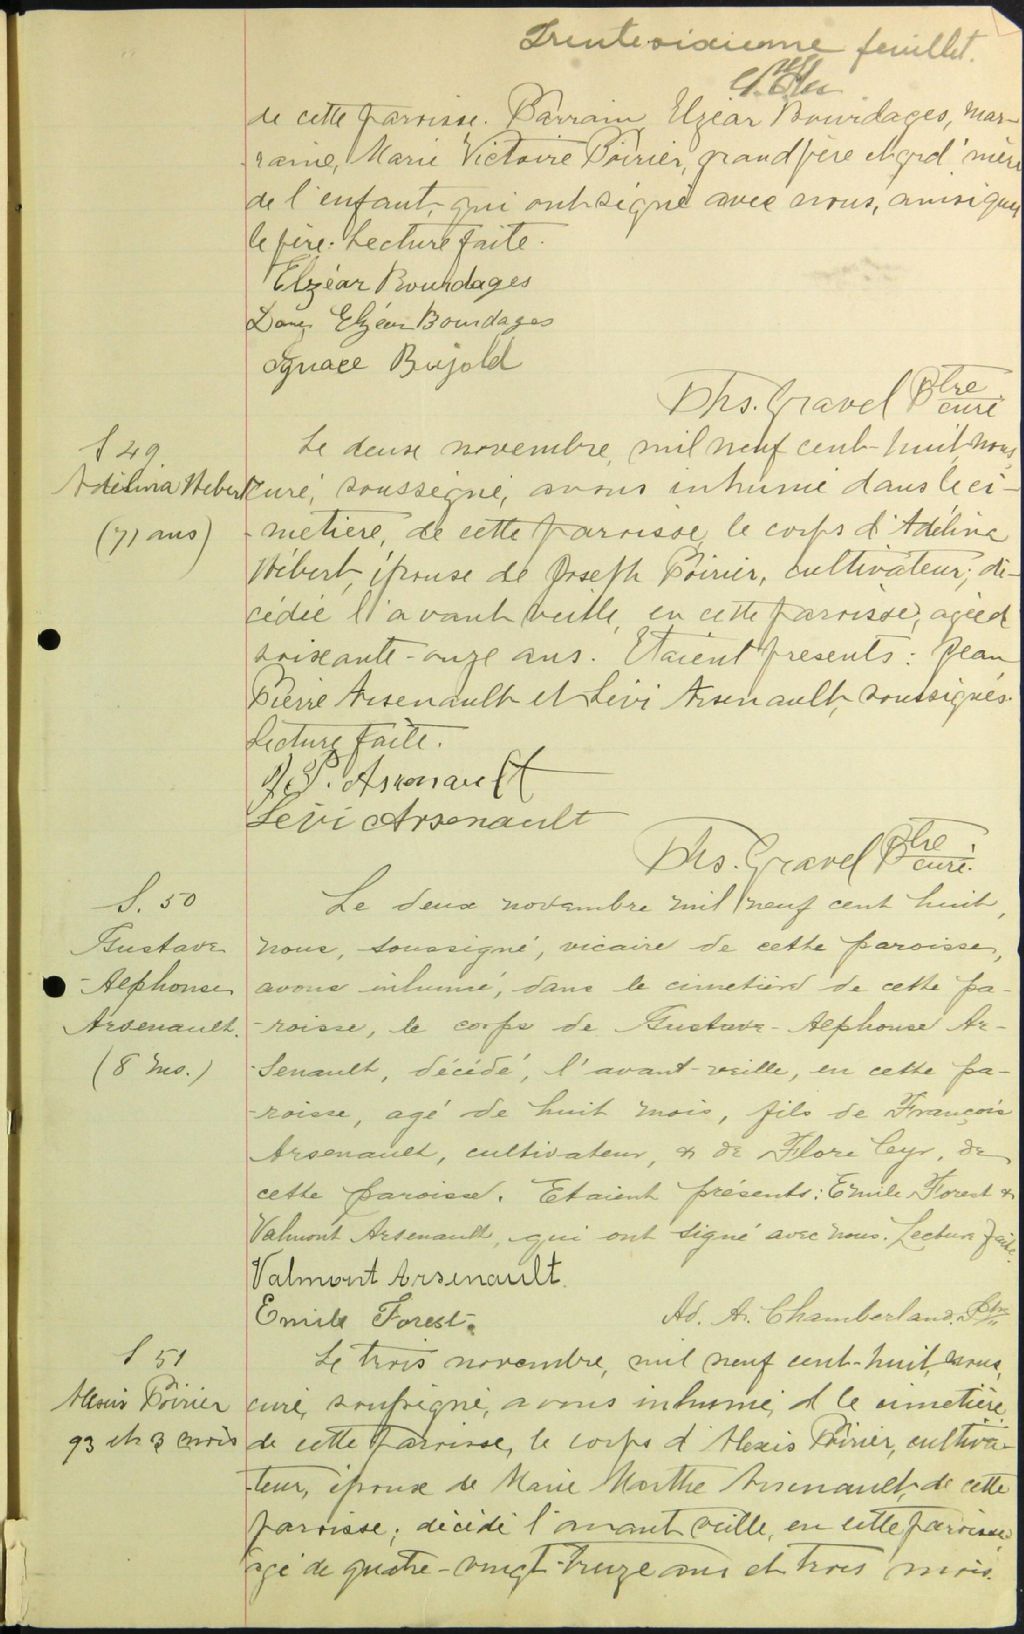 Trente-sixieme feuillet.
de cette paroisse. Parrain, Elzéar Bourdages, mar-
raine, Marie Victoire Poirier, grand père et grd' mère
de l'enfant, qui ont signé avec nous, ainsi que
le père. Lecture faite.
Elzéar Bourdages
Dame Elzéar Bourdages
Ignace Bujold
Ths. Gravel Ptre
curé
S 49
Adélina Hebert
(71 ans)
Le deux novembre, mil neuf cent-huit, nous,
curé, soussigné, avons inhumé dans le ci-
-metière, de cette paroisse, le corps d'Adélina
Hébert, épouse de Joseph Poirier, cultivateur; dé-
cédée l'avant veille, en cette paroisse, agée d
soixante-onze ans. Etaient presents: Jean
Pierre Arsenault et Lévi Arsenault, soussignés.
Lecture faite.
J. P. Arsenault
Lévi Arsenault
Ths. Gravel Ptre
curé.
S. 50
Gustave
-Alphonse
Arsenault.
(8 ms.)
Le deux novembre mil neuf cent huit,
nous, soussigné, vicaire de cette paroisse,
avons inhumé, dans le cimetière de cette pa-
-roisse, le corps de Gustave-Alphonse Ar-
-senault, décédé, l'avant-veille, en cette pa-
-roisse, agé de huit mois, fils de François
Arsenault, cultivateur, & de Flore Cyr, de
cette paroisse. Etaient présents: Emile Forest &
Valmont Arsenault, qui ont signé avec nous. Lecture faite.
Valmont Arsenault.
Emile Forest.
Ad. A. Chamberland. Ptre
S 51
Alexis Poirier
93 et 3 mois
Le trois novembre, mil neuf cent-huit, nous,
curé, soussigné, avons inhumé, d le cimetière
de cette paroisse, le corps d'Alexis Poirier, cultiva-
-teur, époux de Marie Marthe Arsenault, de cette
paroisse; décédé l'avant veille, en cette paroisse,
agé de quatre-vingt-treize ans et trois mois.